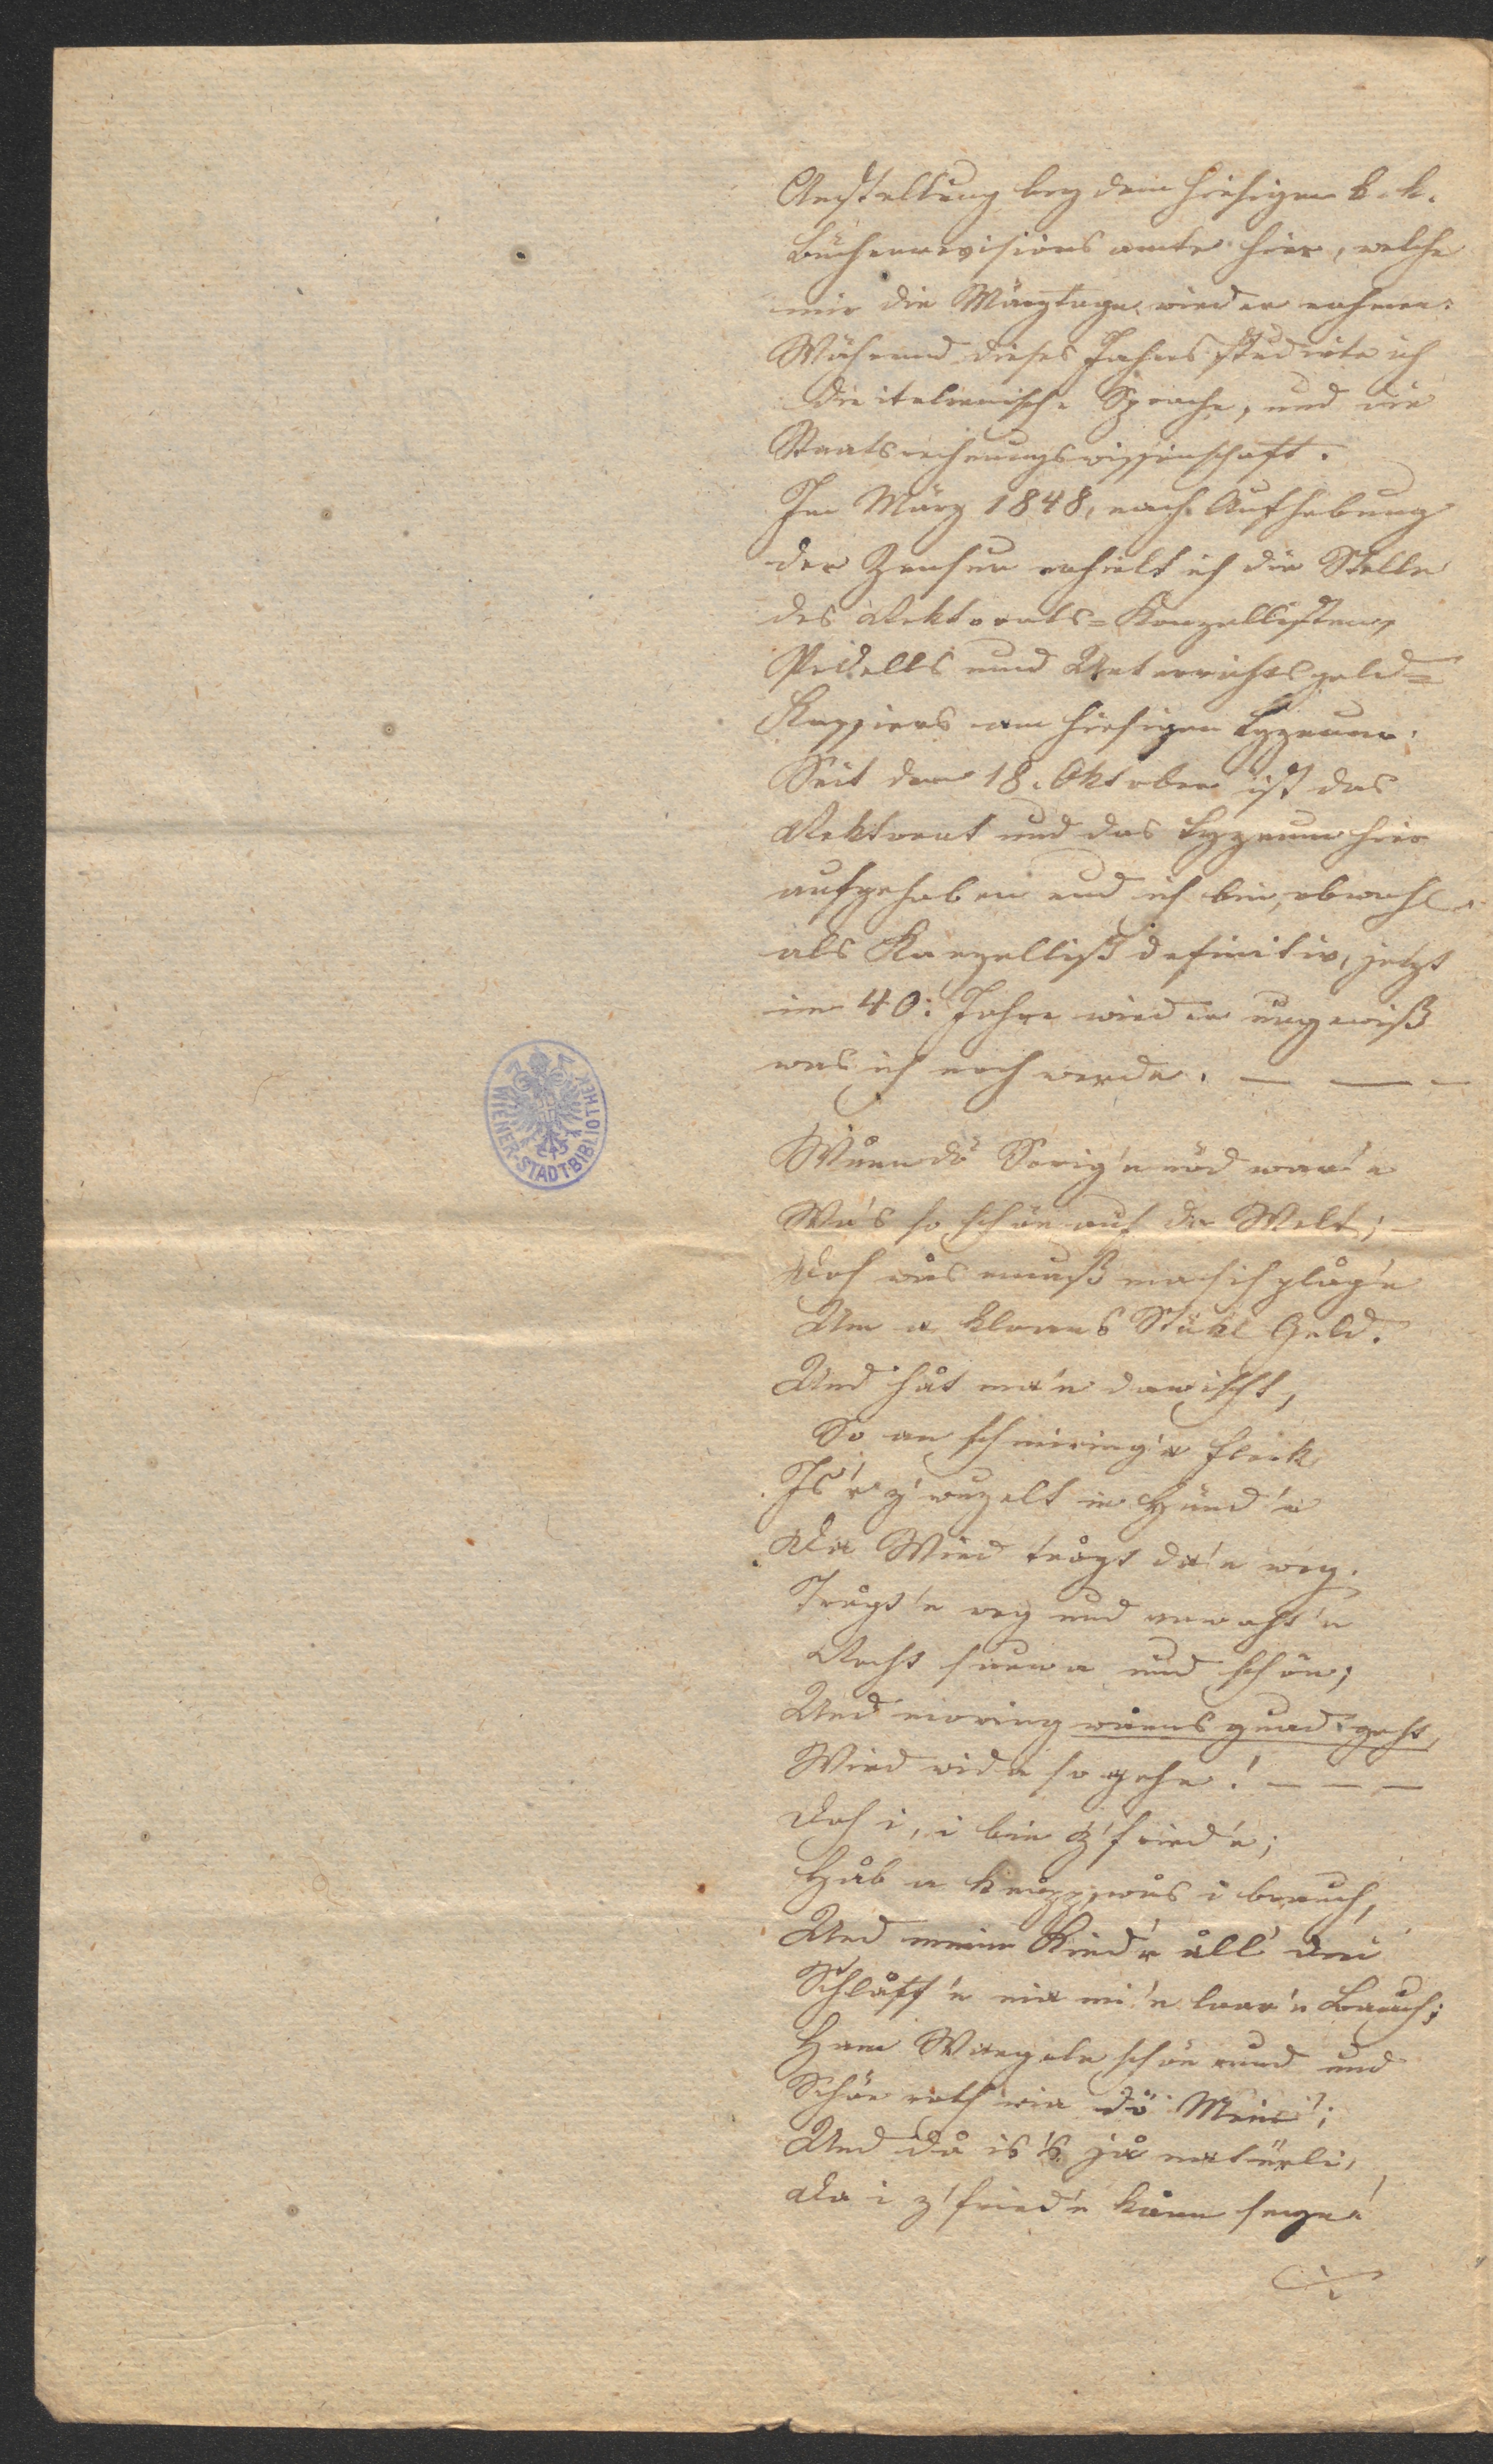 Anstellung bey dem hiesigen k. k.
Bücherrevisionsamte hier, welche
mir die Märztage wieder nahmen.
Während dieses Jahres studirte ich
die italienische Sprache, und die
Staatsrechnungswissenschaft.
Im März 1848, nach Aufhebung
der Zensur erhielt ich die Stelle
des Rektorats=Kanzellisten,
Pedells und Unterrichtsgeld=
Kassiers am hiesigen Lyzeum.
Seit dem 18. Oktober ist das
Rektorat und das Lyzeum hier
aufgehoben und ich bin, obwohl
als Kanzellist definitiv, jetzt
im 40: Jahre wieder ungewiß
was ich noch werde. — — —
Wånn dö Sorig'n nöd war'n
Wa's so schön auf da Welt; —
Doch wås muaß ma sich plåg'n
Um a kloans Stükl Geld.
Und håt ma'n dawischt,
So an schmiring'a Fleck
Is'r z'wuzelt in Händ'n
Da Wind trågt da'n weg.
Trågt'n weg und vawaht'n
Recht sauwa und schön;
Und moring wånns guad geht,
Wird wida so gehn! — — —
Doch i, i bin z'fried'n;
Håb a knapp, wås i brauch,
Und meine Kind'r åll' drei
Schlåff'n nia mi'n laar'n Bauch;
Ham Wangeln schön rund und
Schön roth wia dö Mein';
Und då is's jå natürli,
Da i z'fried'n kånn seyn!